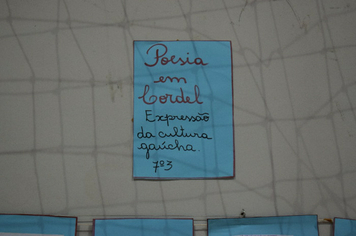 Poesia
em
Cordel
Expressão
da cultura
gaúcha.
7º3